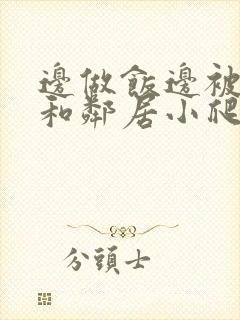 邊做飯邊被
和鄰居小爬
分頭士